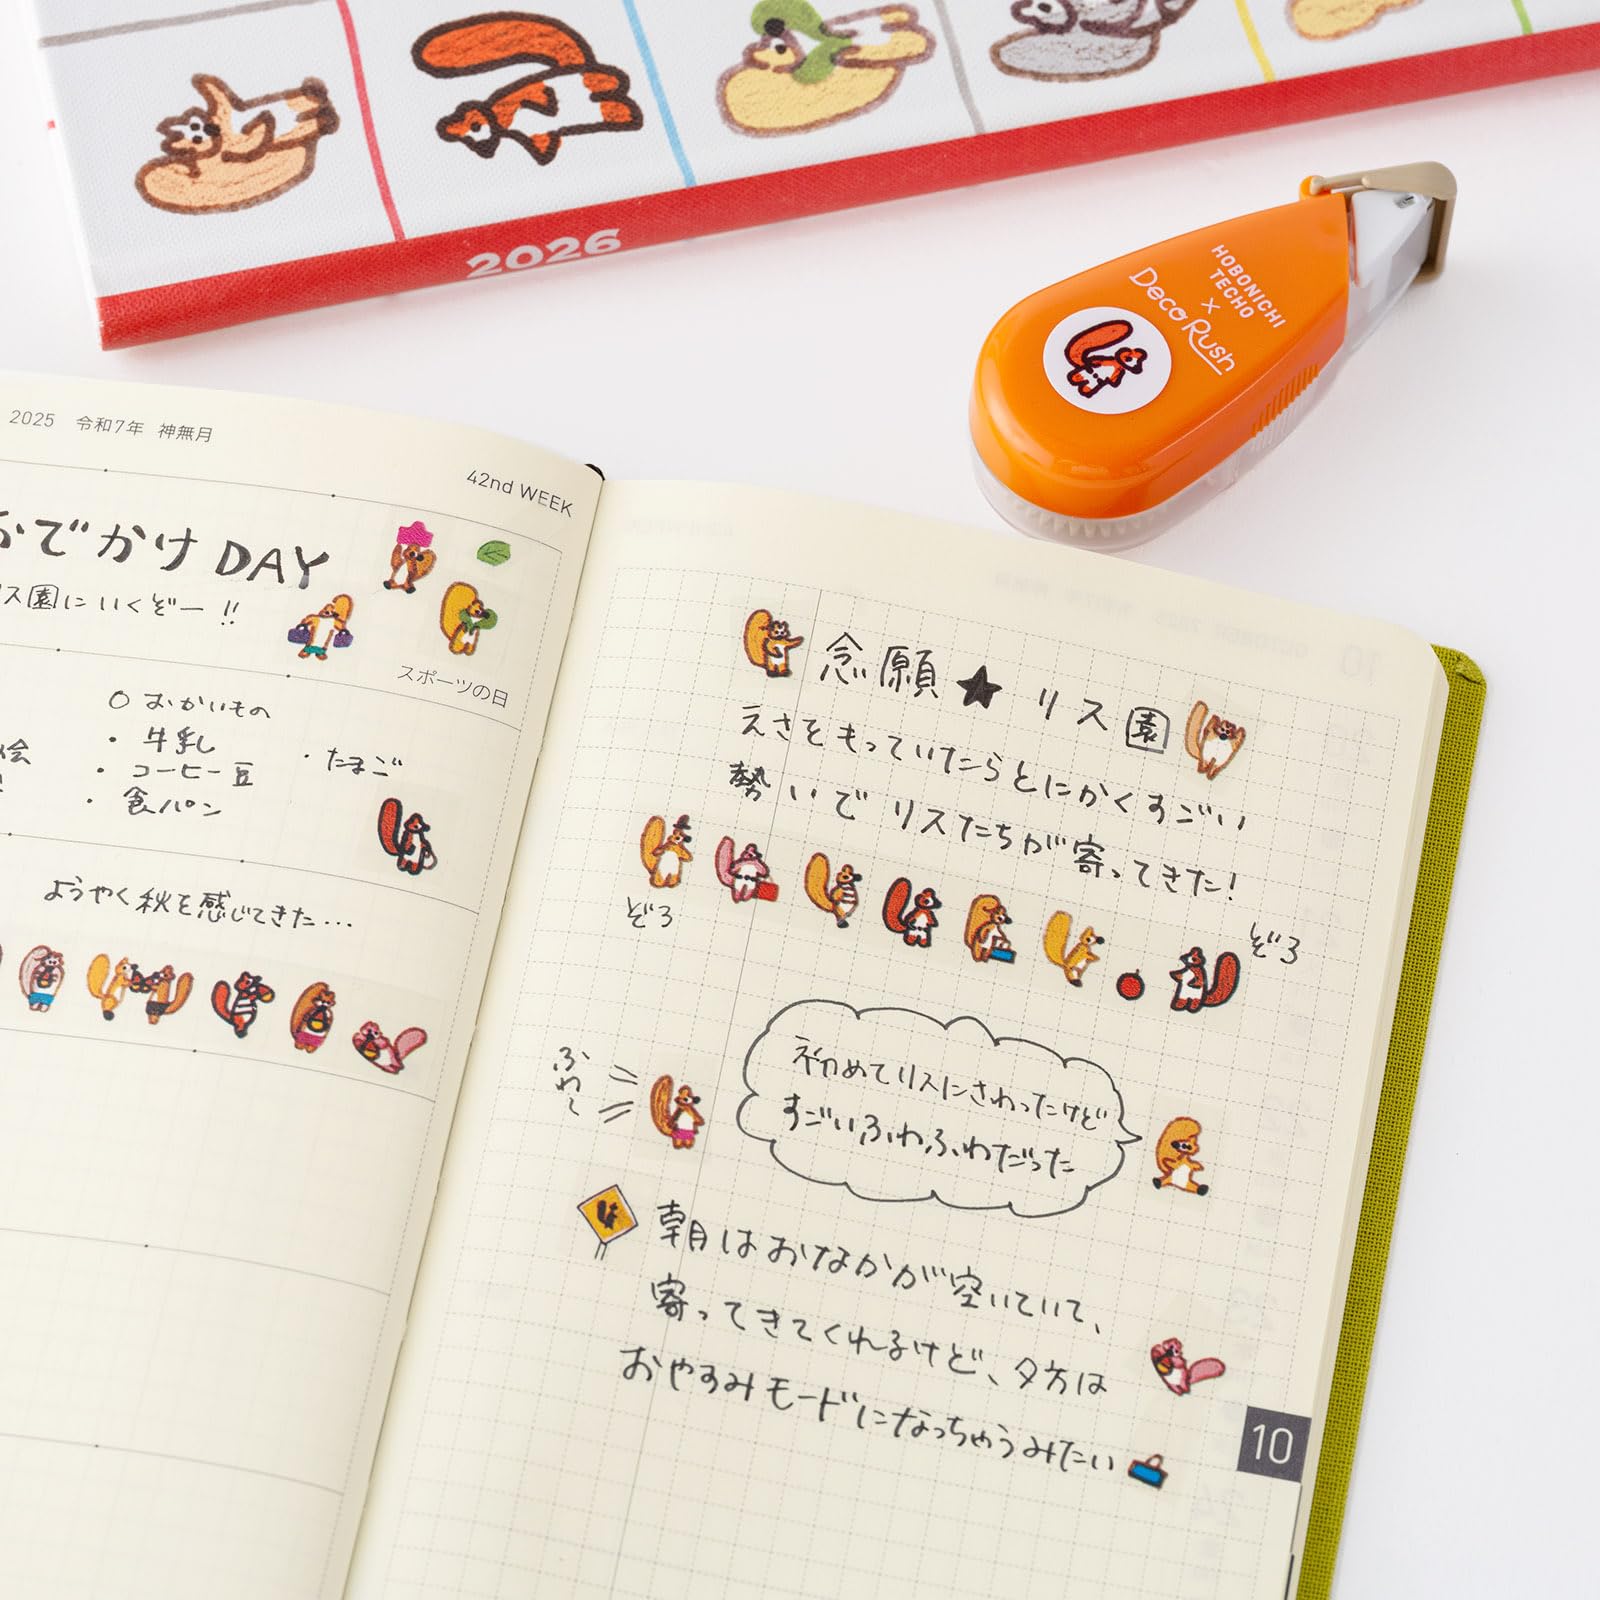 2026
HOBONICHI
TECHO
×
Deco Rush
2025 令和7年 神無月
42nd WEEK
おでかけ DAY
リス園にいくぞー!!
スポーツの日
○ おかいもの
・ 牛乳
・ たまご
・ コーヒー豆
・ 食パン
絵
ようやく秋を感じてきた…
念願★リス園
えさをもっていたらとにかくすごい
勢いでリスたちが寄ってきた!
ぞろ
ぞろ
ふわ〜
初めてリスにさわったけど
すごいふわふわだった
朝はおなかが空いていて、
寄ってきてくれるけど、夕方は
おやすみモードになっちゃうみたい
10